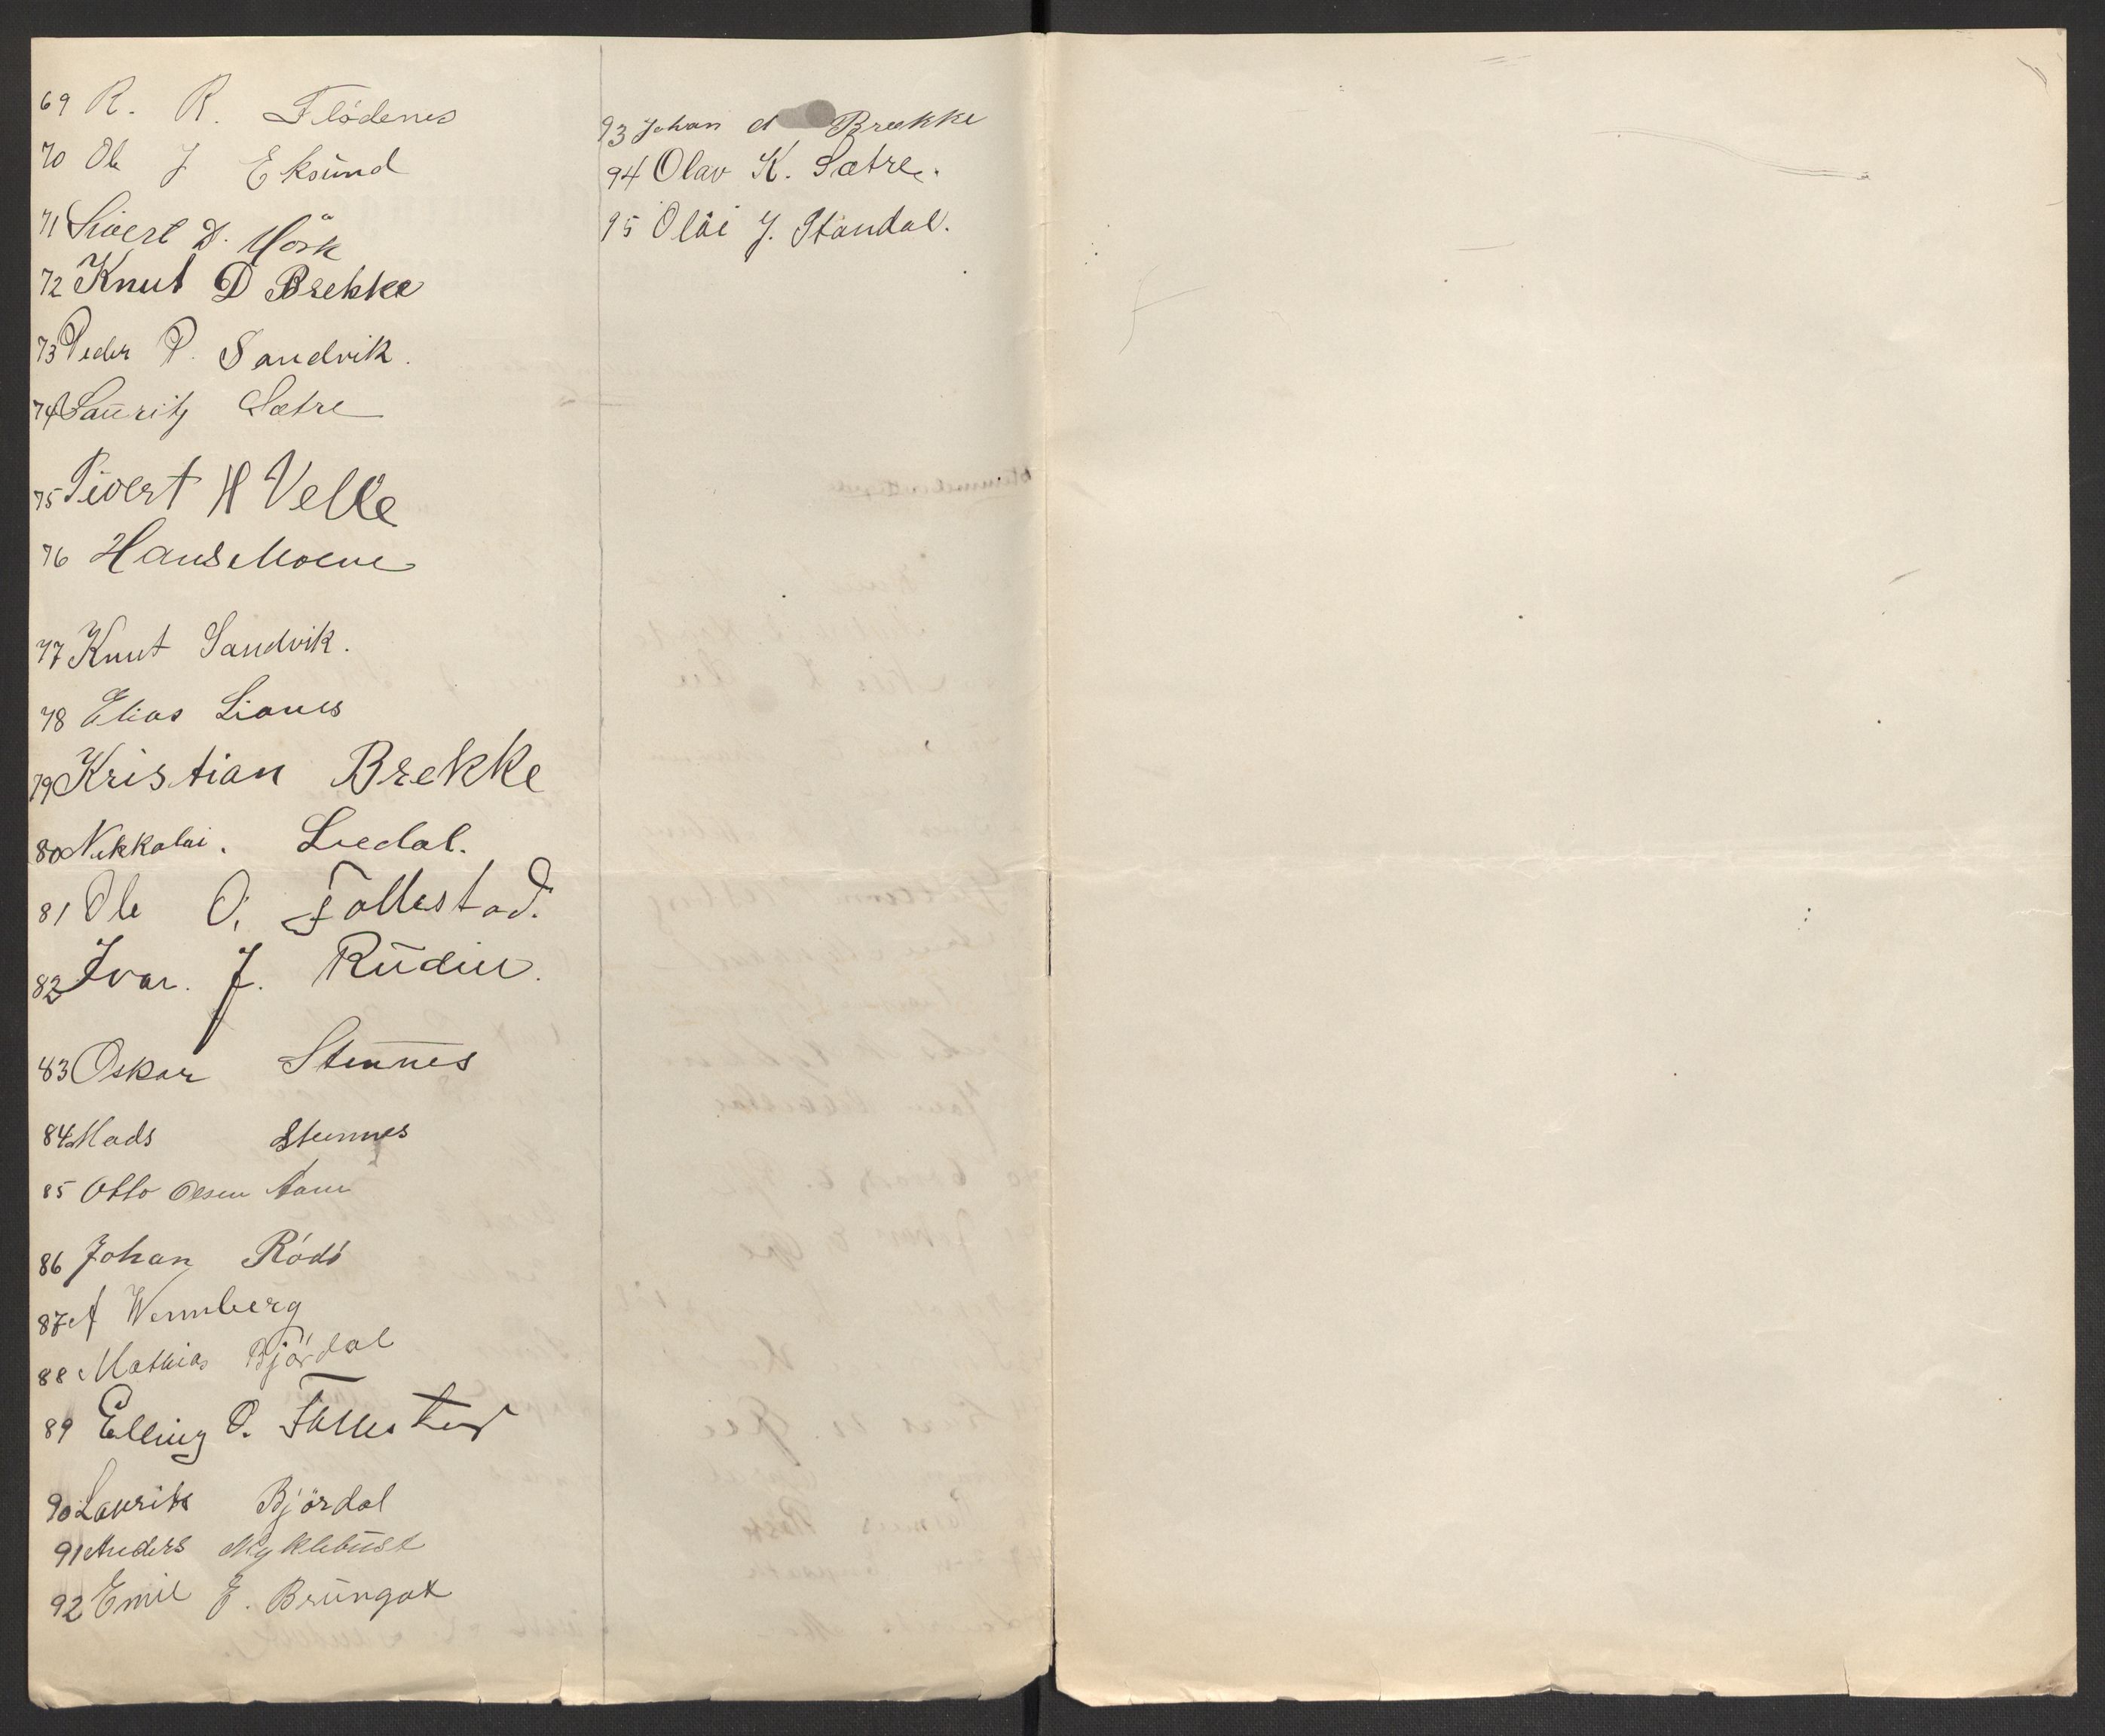 69 R. R. Flödenes
70 Ole J Eksund
71 Sivert D. Mörk
72 Knut D Brekke
73 Peder P. Sandvik.
74 Lauritz Sætre
75 Sivert H Velle
76 Hans Moene
77 Knut Sandvik.
78 Elias Lianes
79 Kristian Brekke
80 Nikkolai. Liedal.
81 Ole O. Follestad.
82 Ivar. J. Rudin.
83 Oskar Stennes
84 Mads Stennes
85 Otto Olsen Aam
86 Johan Södö
87 A Wennberg
88 Mathias Björdal
89 Elling O. Follestad
90 Laurits Björdal
91 Anders Myklebust
92 Emil E. Brungot
93 Johan d Brække
94 Olav K. Sætre.
95 Olai J. Standal.